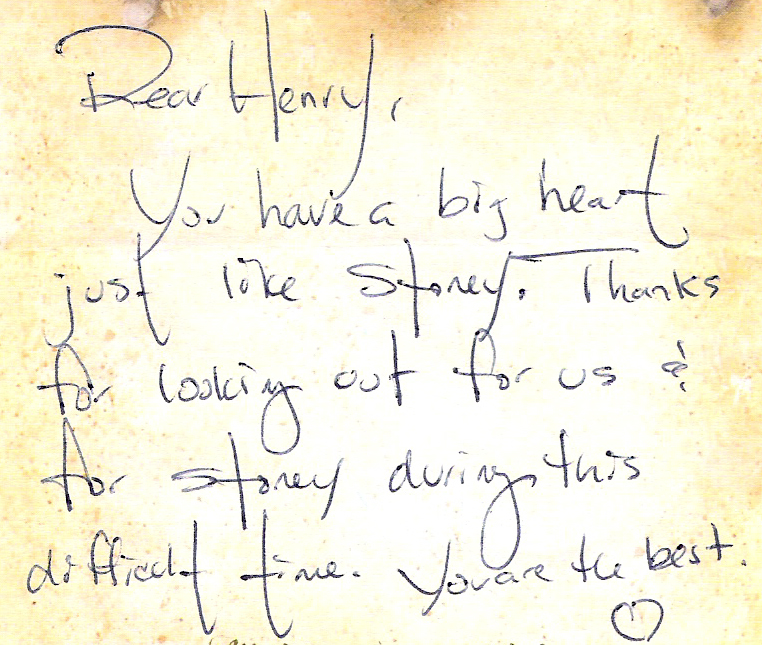 Dear Henry,
You have a big heart
just like Stoney. Thanks
for looking out for us &
for Stoney during this
difficult time. You are the best.
♡